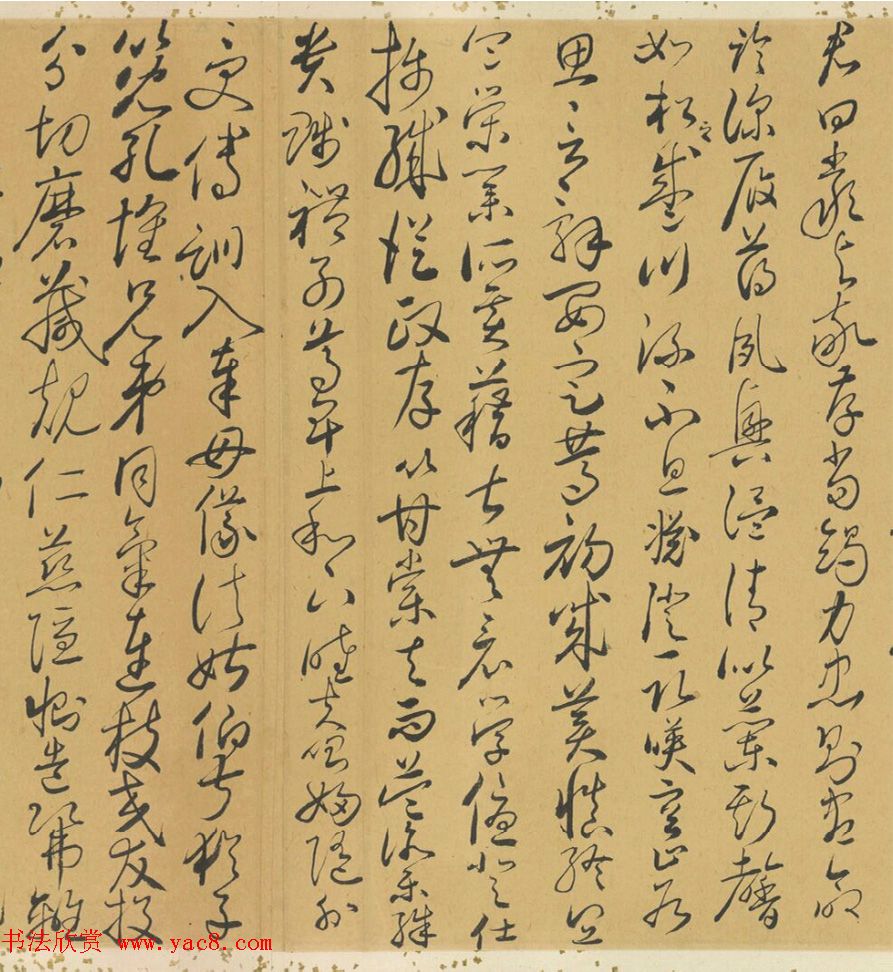 君曰嚴與敬孝當竭力忠則盡命
臨深履薄夙興溫清似蘭斯馨
如松之盛川流不息淵澄取映容止若
思言辭安定篤初誠美慎終宜
令榮業所基籍甚無竟學優登仕
攝職從政存以甘棠去而益詠樂殊
貴賤禮別尊卑上和下睦夫唱婦隨外
受傅訓入奉母儀諸姑伯叔猶子
比兒孔懷兄弟同氣連枝交友投
分切磨箴規仁慈隱惻造次弗離
书法欣赏 www.yac8.com